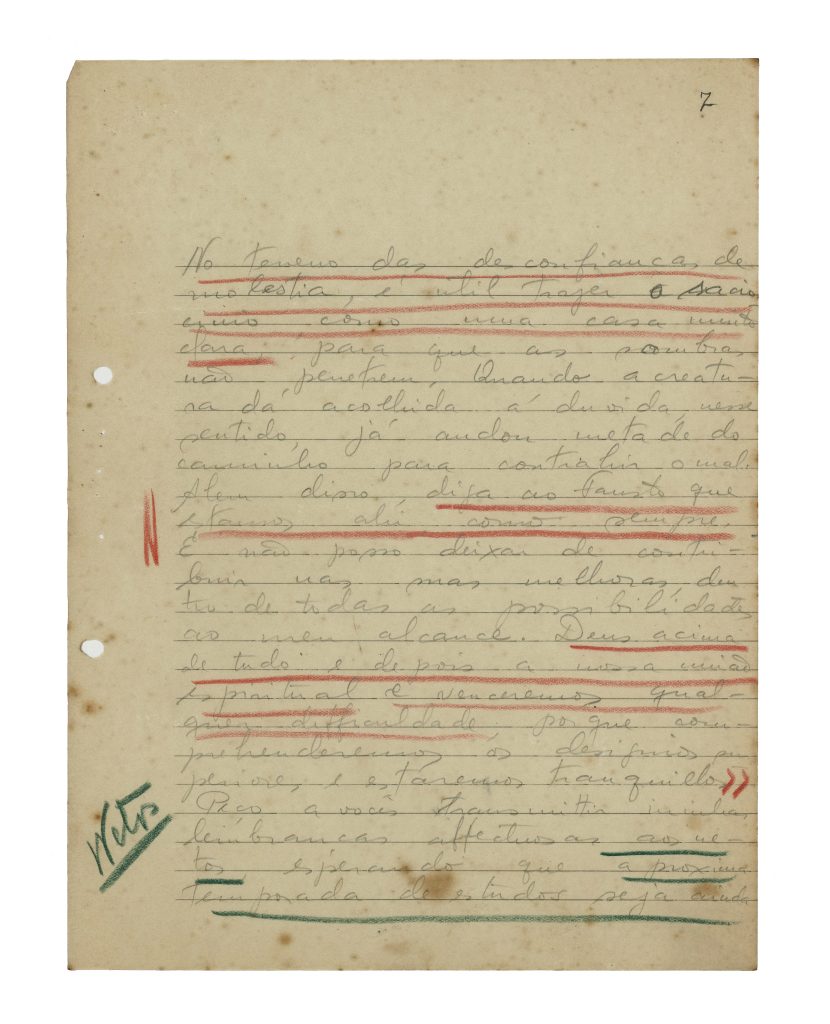 7
No terreno das desconfianças de
molestia, é util trazer o racio
cinio como uma casa muito
clara, para que as sombras
não penetrem. Quando a creatu-
ra dá acolhida á duvida, nesse
sentido, já andou metade do
caminho para contrahir o mal.
Alem disso, diga ao Fausto que
estamos ahi como sempre.
E não posso deixar de contri-
buir nas suas melhoras den
tro de todas as possibilidades
ao meu alcance. Deus acima
de tudo e depois a nossa união
espiritual e venceremos qual-
quer difficuldade porque com-
prehenderemos os designios su
periores e estaremos tranquillos »
Peço a vocês transmittir minhas
lembranças affectuosas aos ne-
Netos
tos esperando que a proxima
temporada de estudos seja ainda